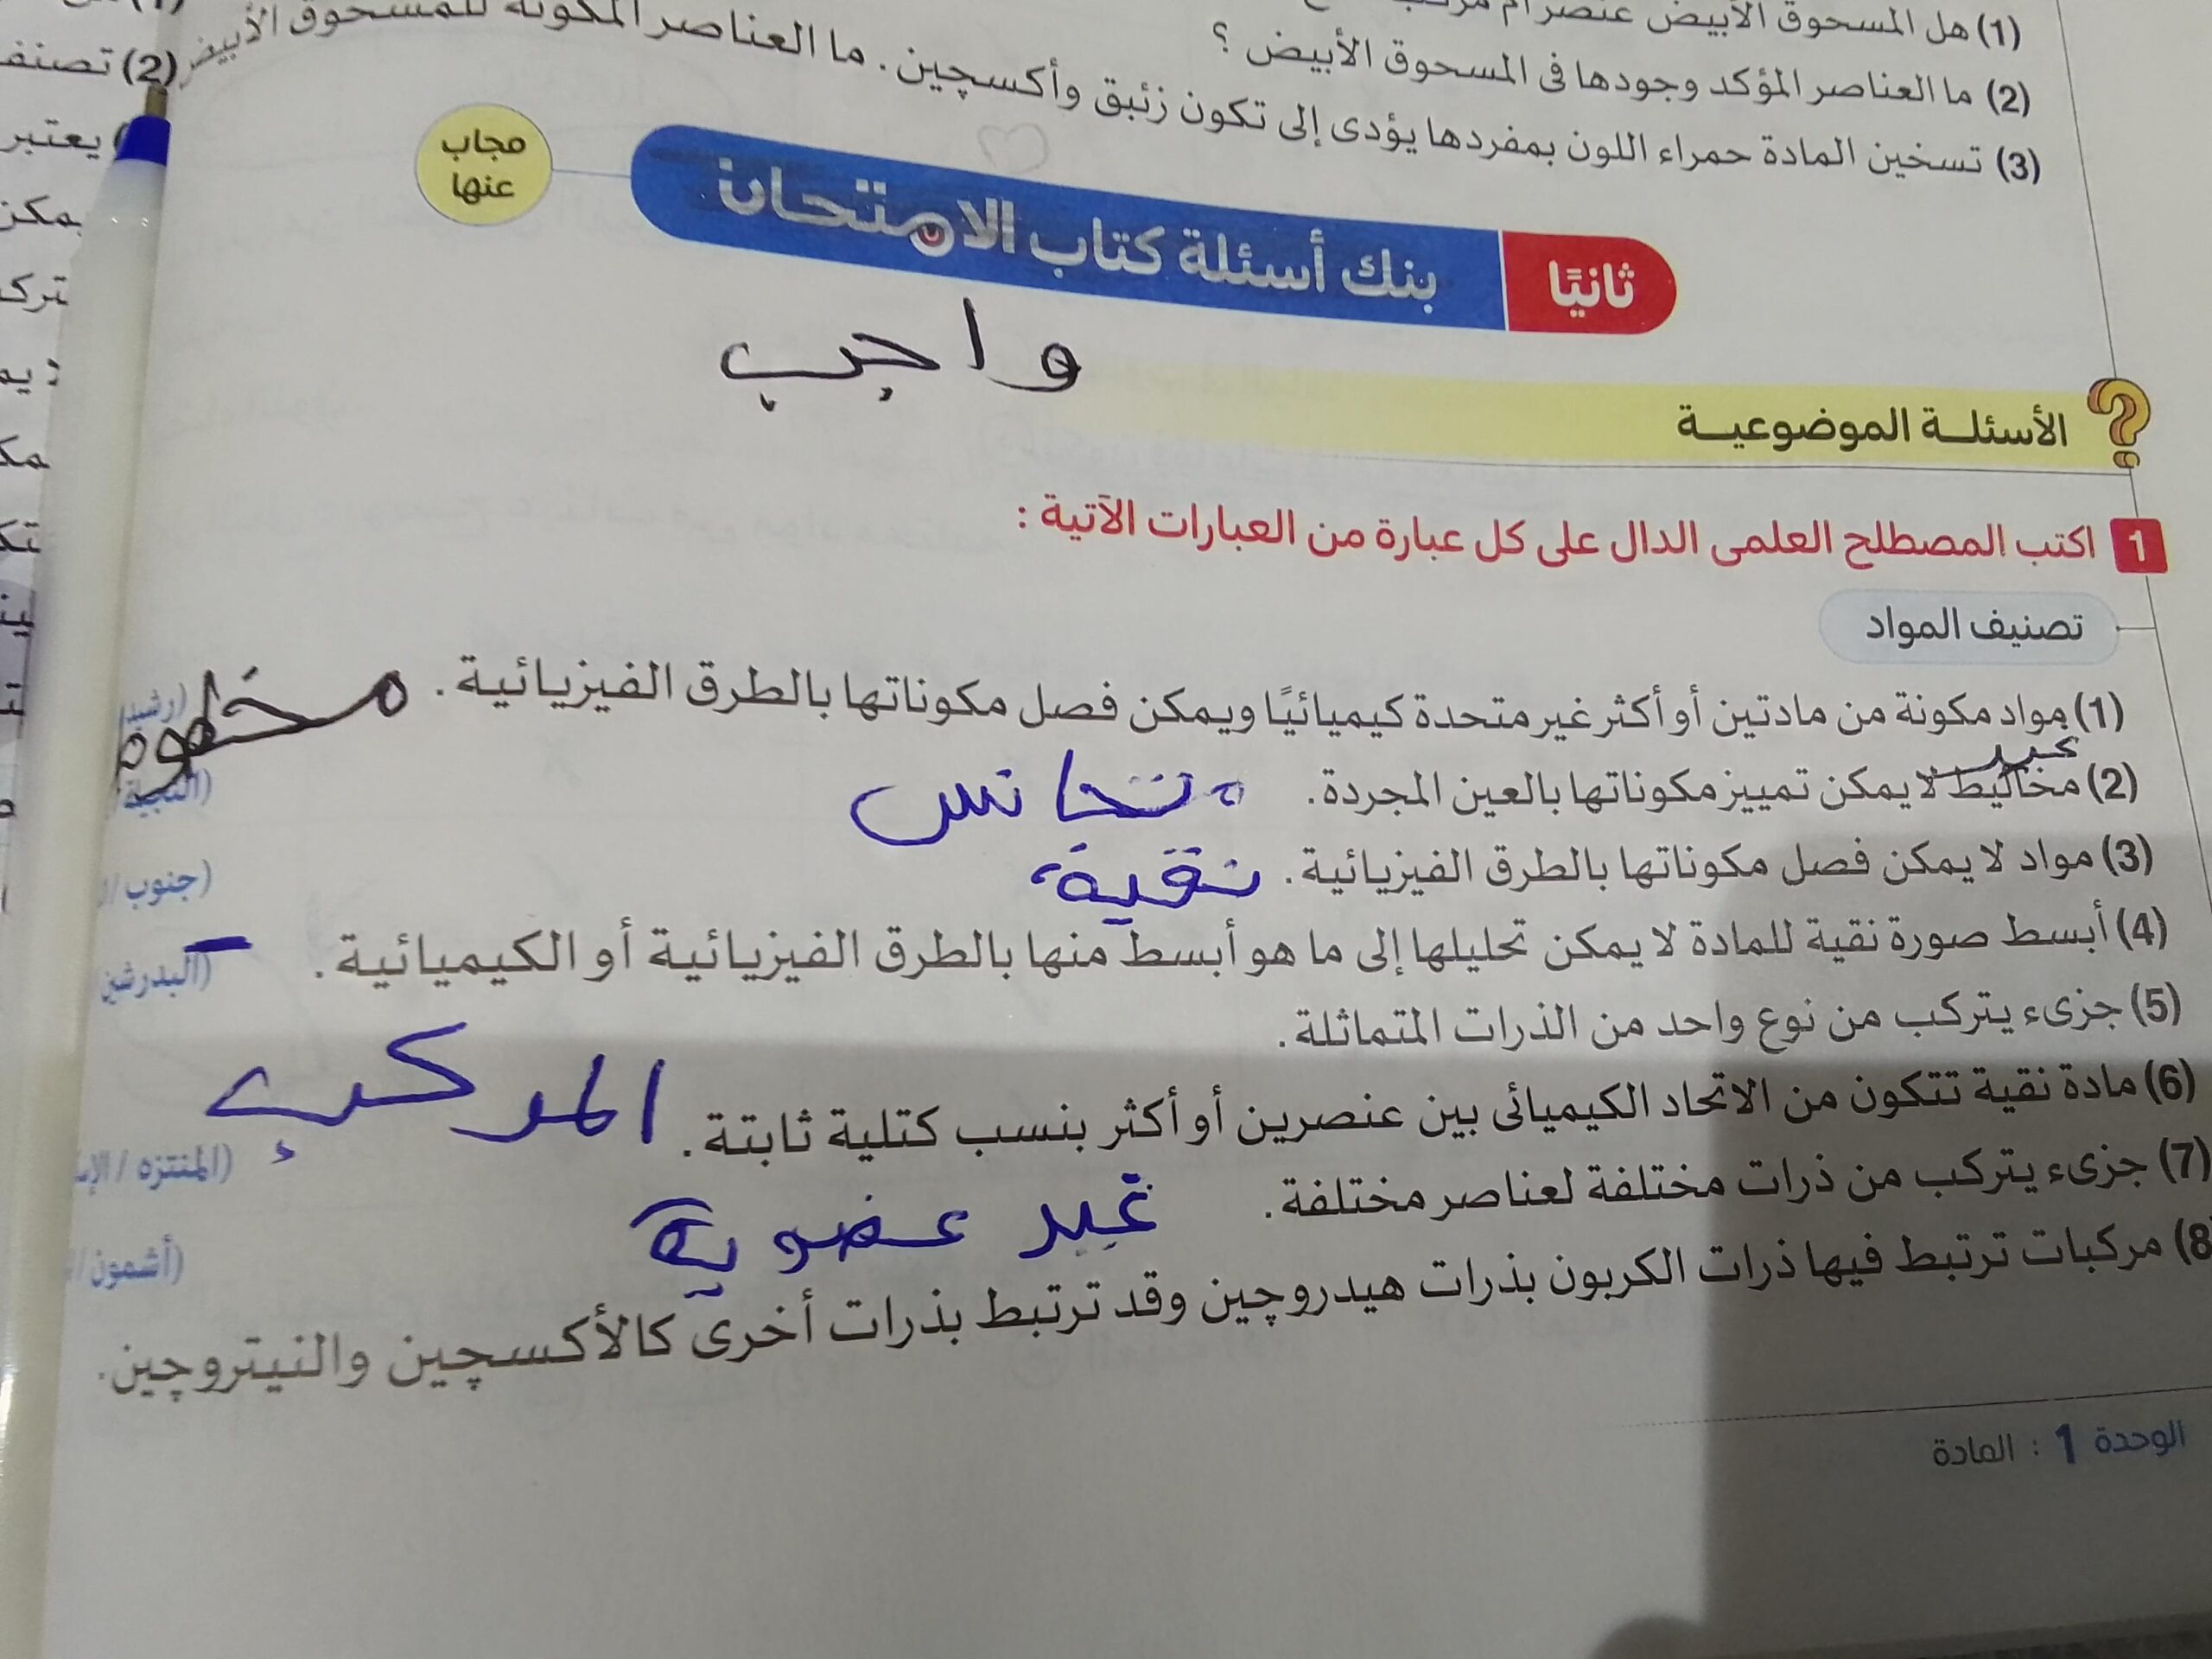 (1) هل المسحوق الأبيض عنصر أم
(2) ما العناصر المؤكد وجودها فى المسحوق الأبيض ؟
(3) تسخين المادة حمراء اللون بمفردها يؤدى إلى تكون زئبق وأكسچين . ما العناصر المكونة للمسحوق الأبيض
مجاب
عنها
ثانيًا
بنك أسئلة كتاب الامتحان
واجب
الأسئلة الموضوعية
1 اكتب المصطلح العلمى الدال على كل عبارة من العبارات الآتية :
تصنيف المواد
(1) مواد مكونة من مادتين أو أكثر غير متحدة كيميائيًا ويمكن فصل مكوناتها بالطرق الفيزيائية .
(رشيد/
غير
(2) مخاليط لا يمكن تمييز مكوناتها بالعين المجردة. متجانس
(3) مواد لا يمكن فصل مكوناتها بالطرق الفيزيائية . نقية
(جنوب /
(4) أبسط صورة نقية للمادة لا يمكن تحليلها إلى ما هو أبسط منها بالطرق الفيزيائية أو الكيميائية .
(البدرشين
(5) جزىء يتركب من نوع واحد من الذرات المتماثلة .
(6) مادة نقية تتكون من الاتحاد الكيميائى بين عنصرين أو أكثر بنسب كتلية ثابتة . المركب
(المنتزه /
(7) جزىء يتركب من ذرات مختلفة لعناصر مختلفة . غير عضوية
(أشمون /
(8) مركبات ترتبط فيها ذرات الكربون بذرات هيدروچين وقد ترتبط بذرات أخرى كالأكسچين والنيتروچين.
الوحدة 1 : المادة
(2) تصنف
يعتبر